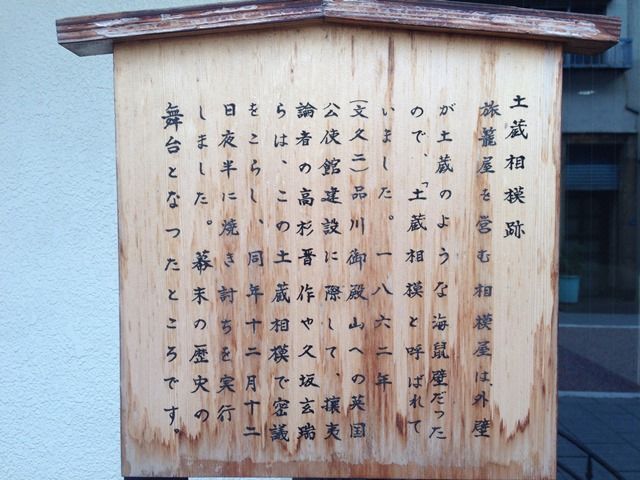 土蔵相模跡
旅籠屋を営む相模屋は、外壁
が土蔵のような海鼠壁だった
ので、「土蔵相模と呼ばれて
いました。一八六二年
(文久二)品川御殿山への英国
公使館建設に際して、攘夷
論者の高杉晋作や久坂玄瑞
らは、この土蔵相模で密議
をこらし、同年十二月十二
日夜半に焼き討ちを実行
しました。幕末の歴史の
舞台となったところです。